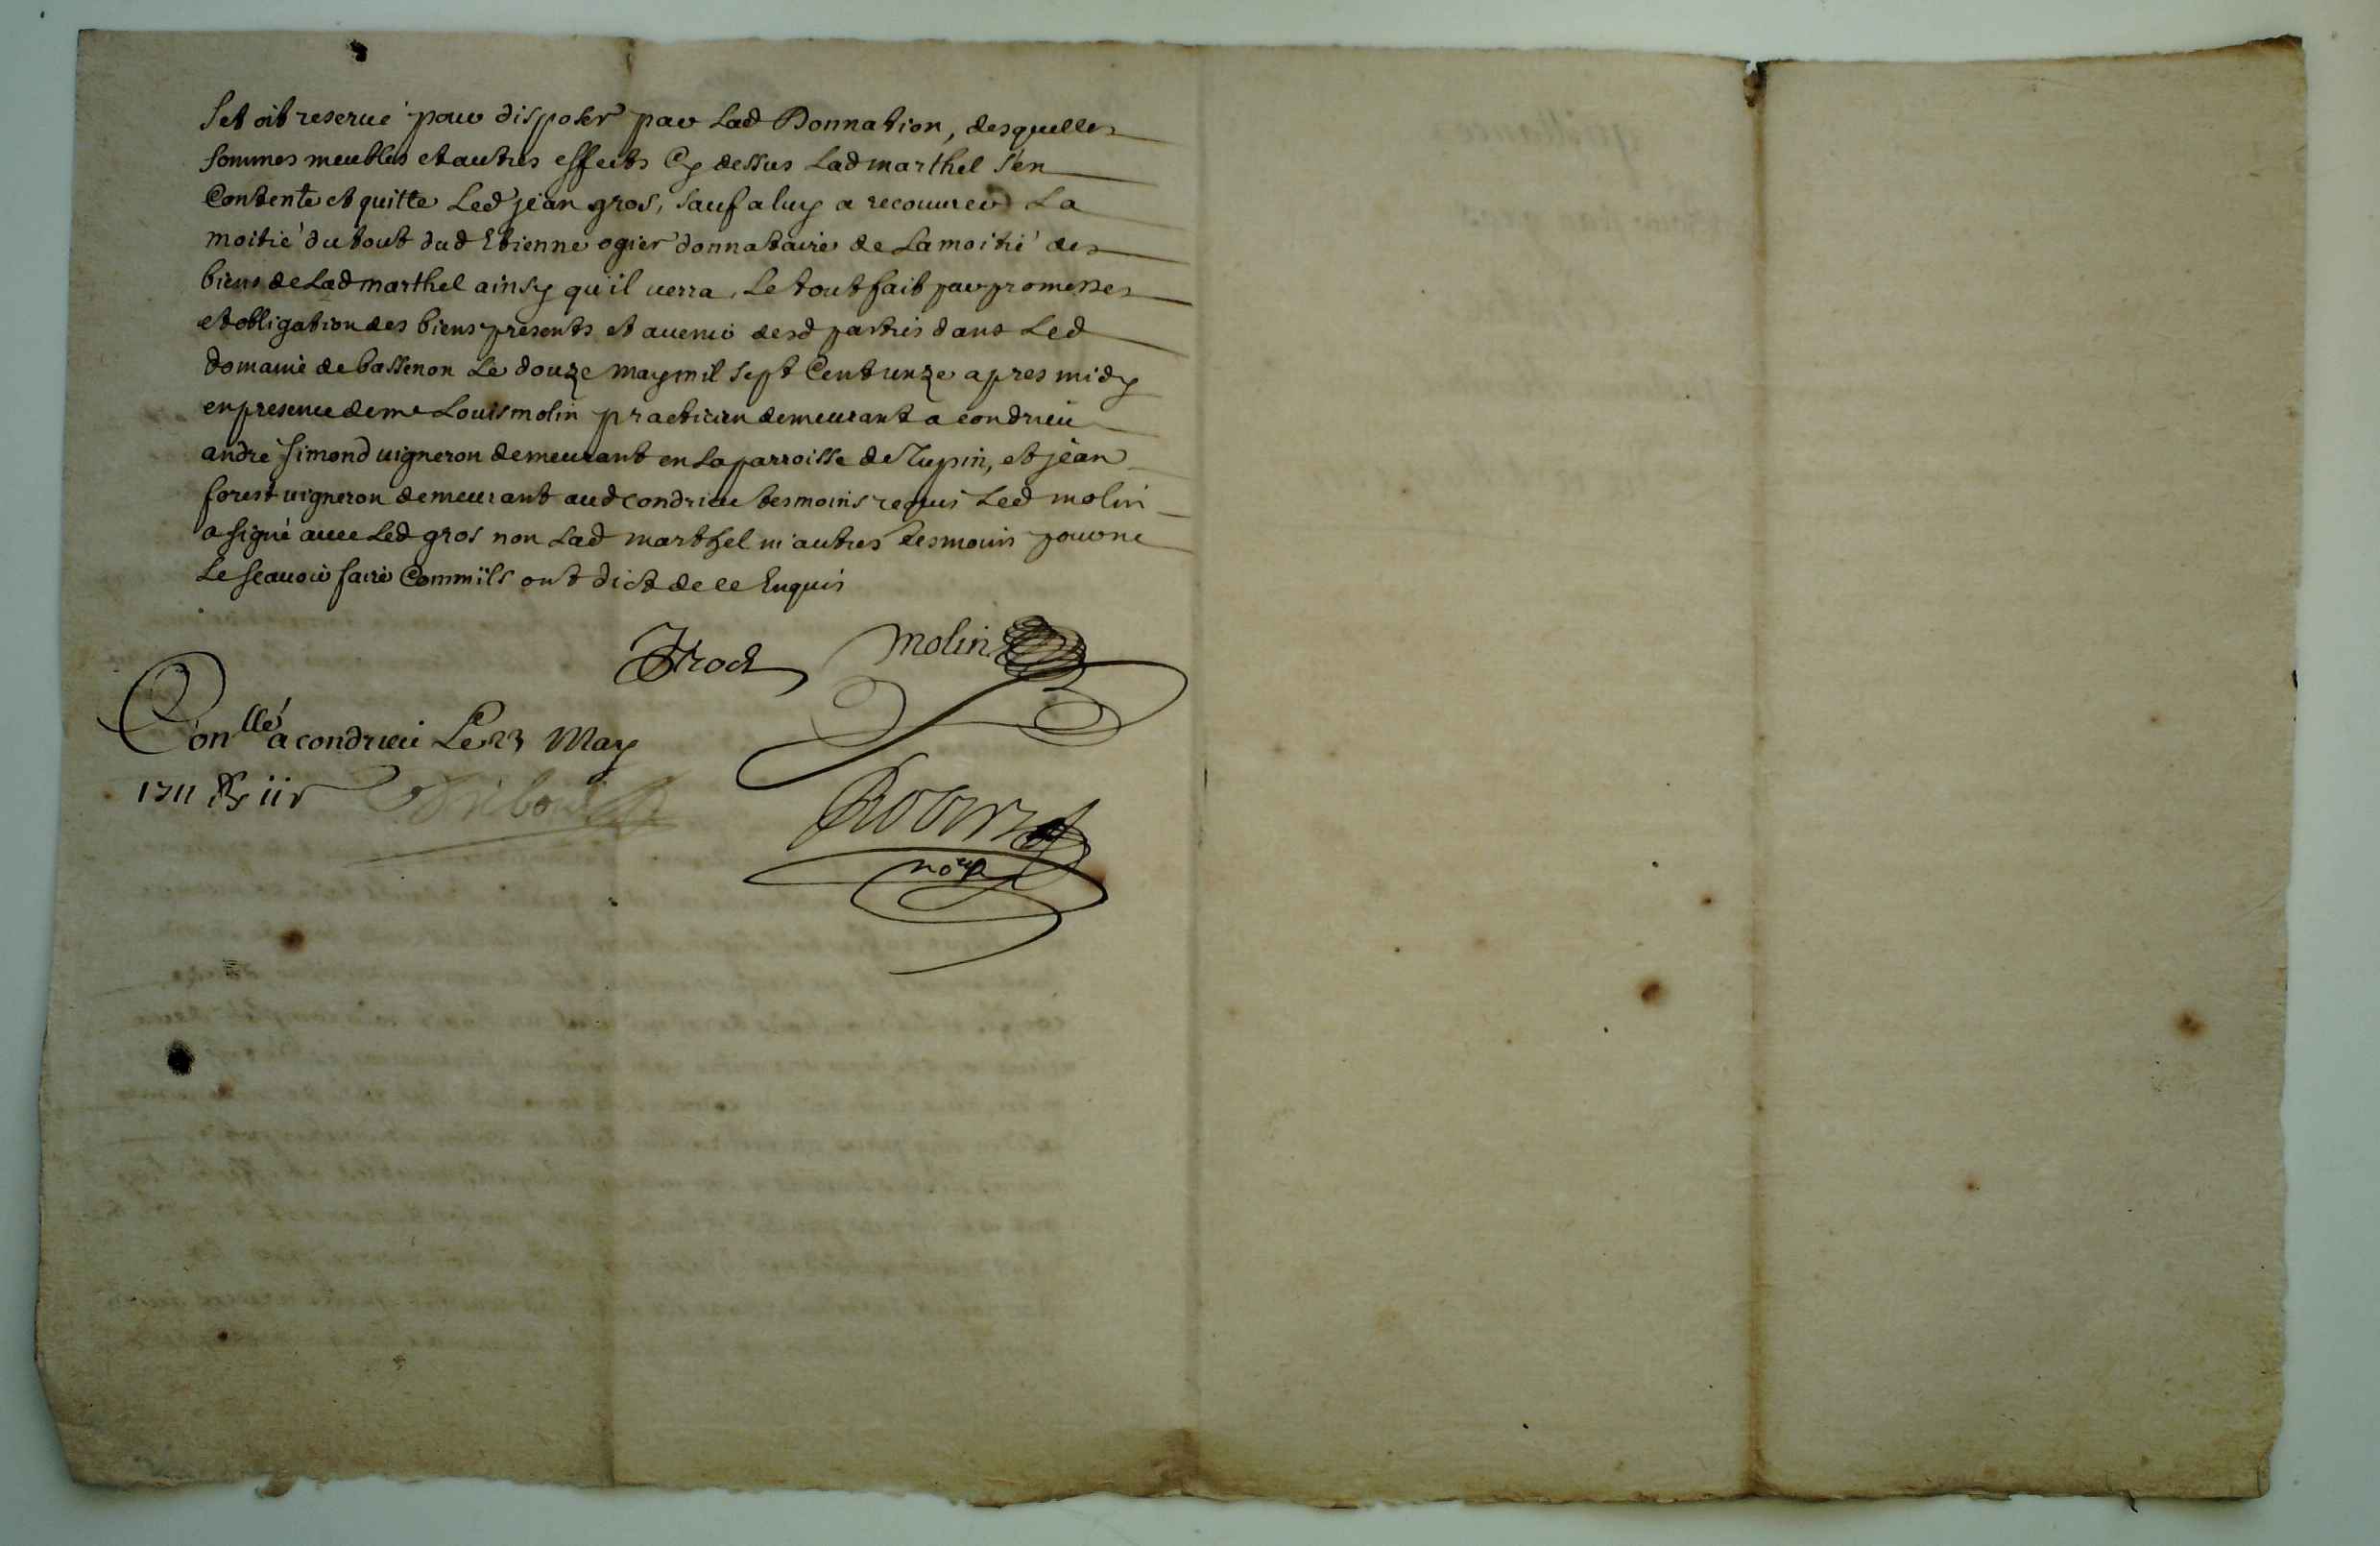 s'etoit reservé pour disposer par Lad Donnation, desquelles
sommes meubles et autres effects Cy dessus Lad marthel s'en
Contente et quitte Led jean gros, sauf a luy a recouurer La
moitié du tout dud Etienne ogier donnataire de La moitié des
biens de Lad marthel ainsy qu'il uerra, Le tout fait par promesses
et obligation des biens presents et auenir desd parties dans Led
domaine de bassenon Le douze may mil sept Cent unze apres midy
en presence de me Louis molin practicien demeurant a condrieu
andré simond uigneron demeurant en La parroisse de Tupin, et jean
forest uigneron demeurant aud condrieu tesmoins requis Led molin
a signé auec Led gros non Lad marthel ni autres tesmoins pour ne
Le scauoir faire Comm'ils ont dict de ce Enquis
molin
Con.llé a condrieu Le 23 May
1711